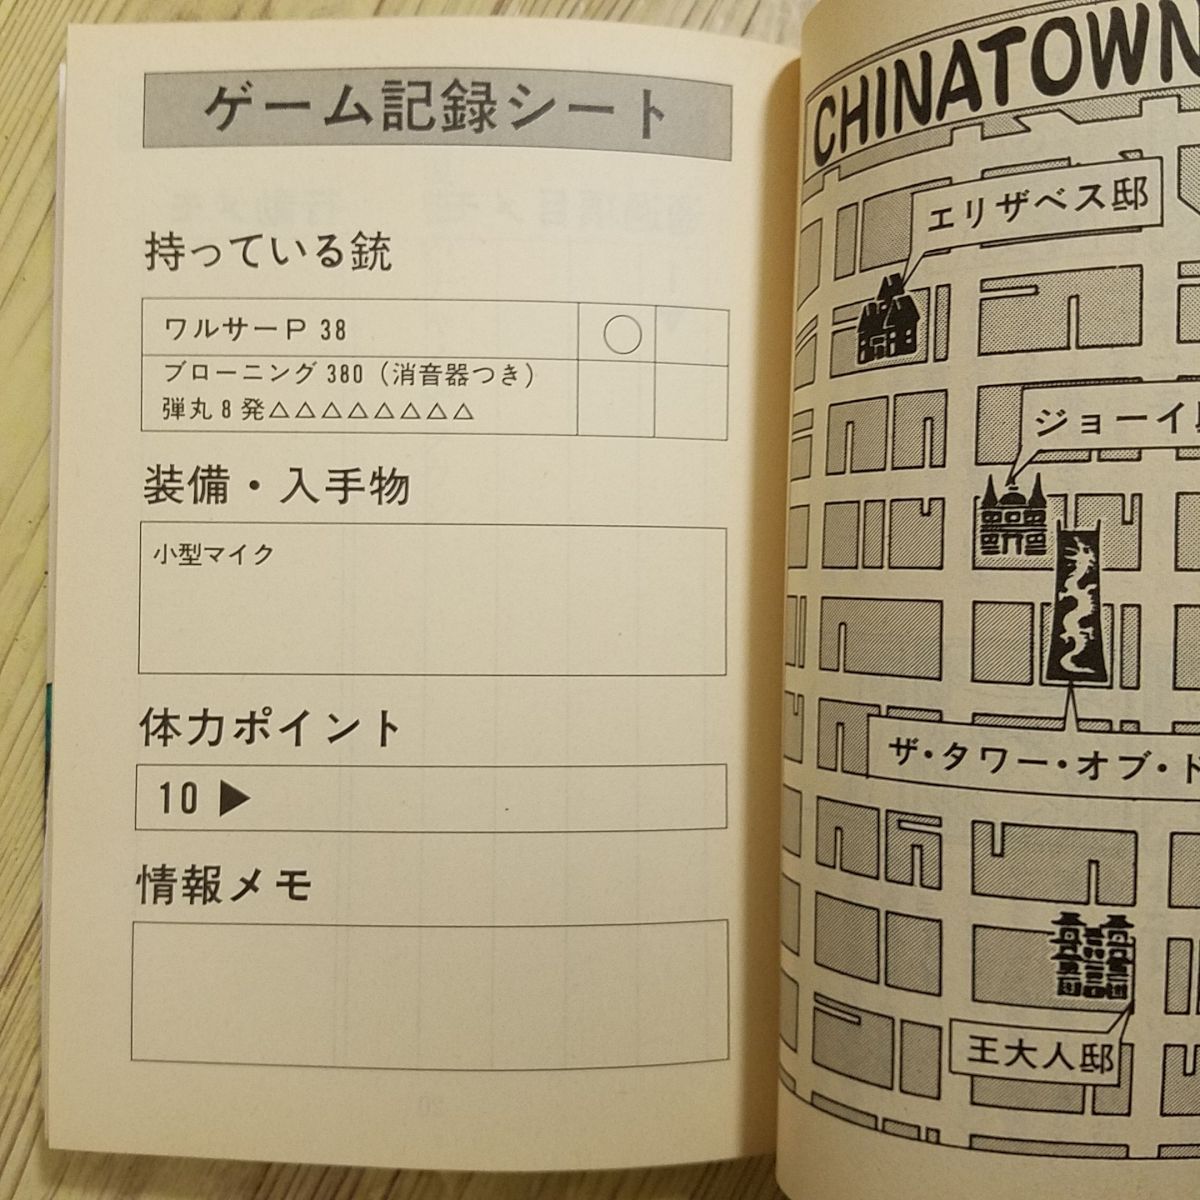 ゲーム記録シート
持っている銃
ワルサーP 38 ○
ブローニング 380（消音器つき）
弾丸 8 発△△△△△△△△
装備・入手物
小型マイク
体力ポイント
10 ▶
情報メモ
CHINATOWN
エリザベス邸
ジョーイ
ザ・タワー・オブ・ド
王大人邸